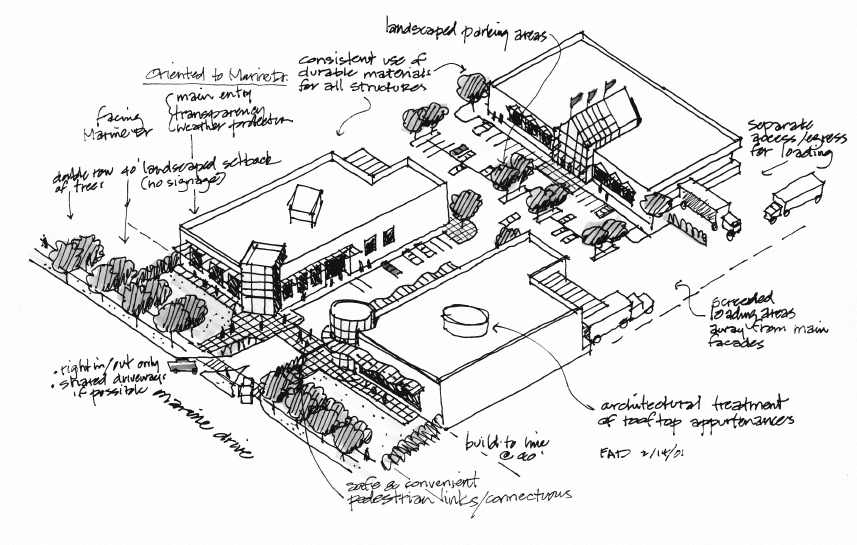 landscaped parking areas
consistent use of
durable materials
for all structures
oriented to Marine Dr.
main entry
transparency
weather protection
facing
Marine Dr
double row
of trees
40' landscaped setback
(no signage)
separate
access/egress
for loading
screened
loading areas
away from main
facades
• right in/out only
• shared driveways
if possible
marine drive
architectural treatment
of rooftop appurtenances
build-to line
@ 40'
safe & convenient
pedestrian links/connections